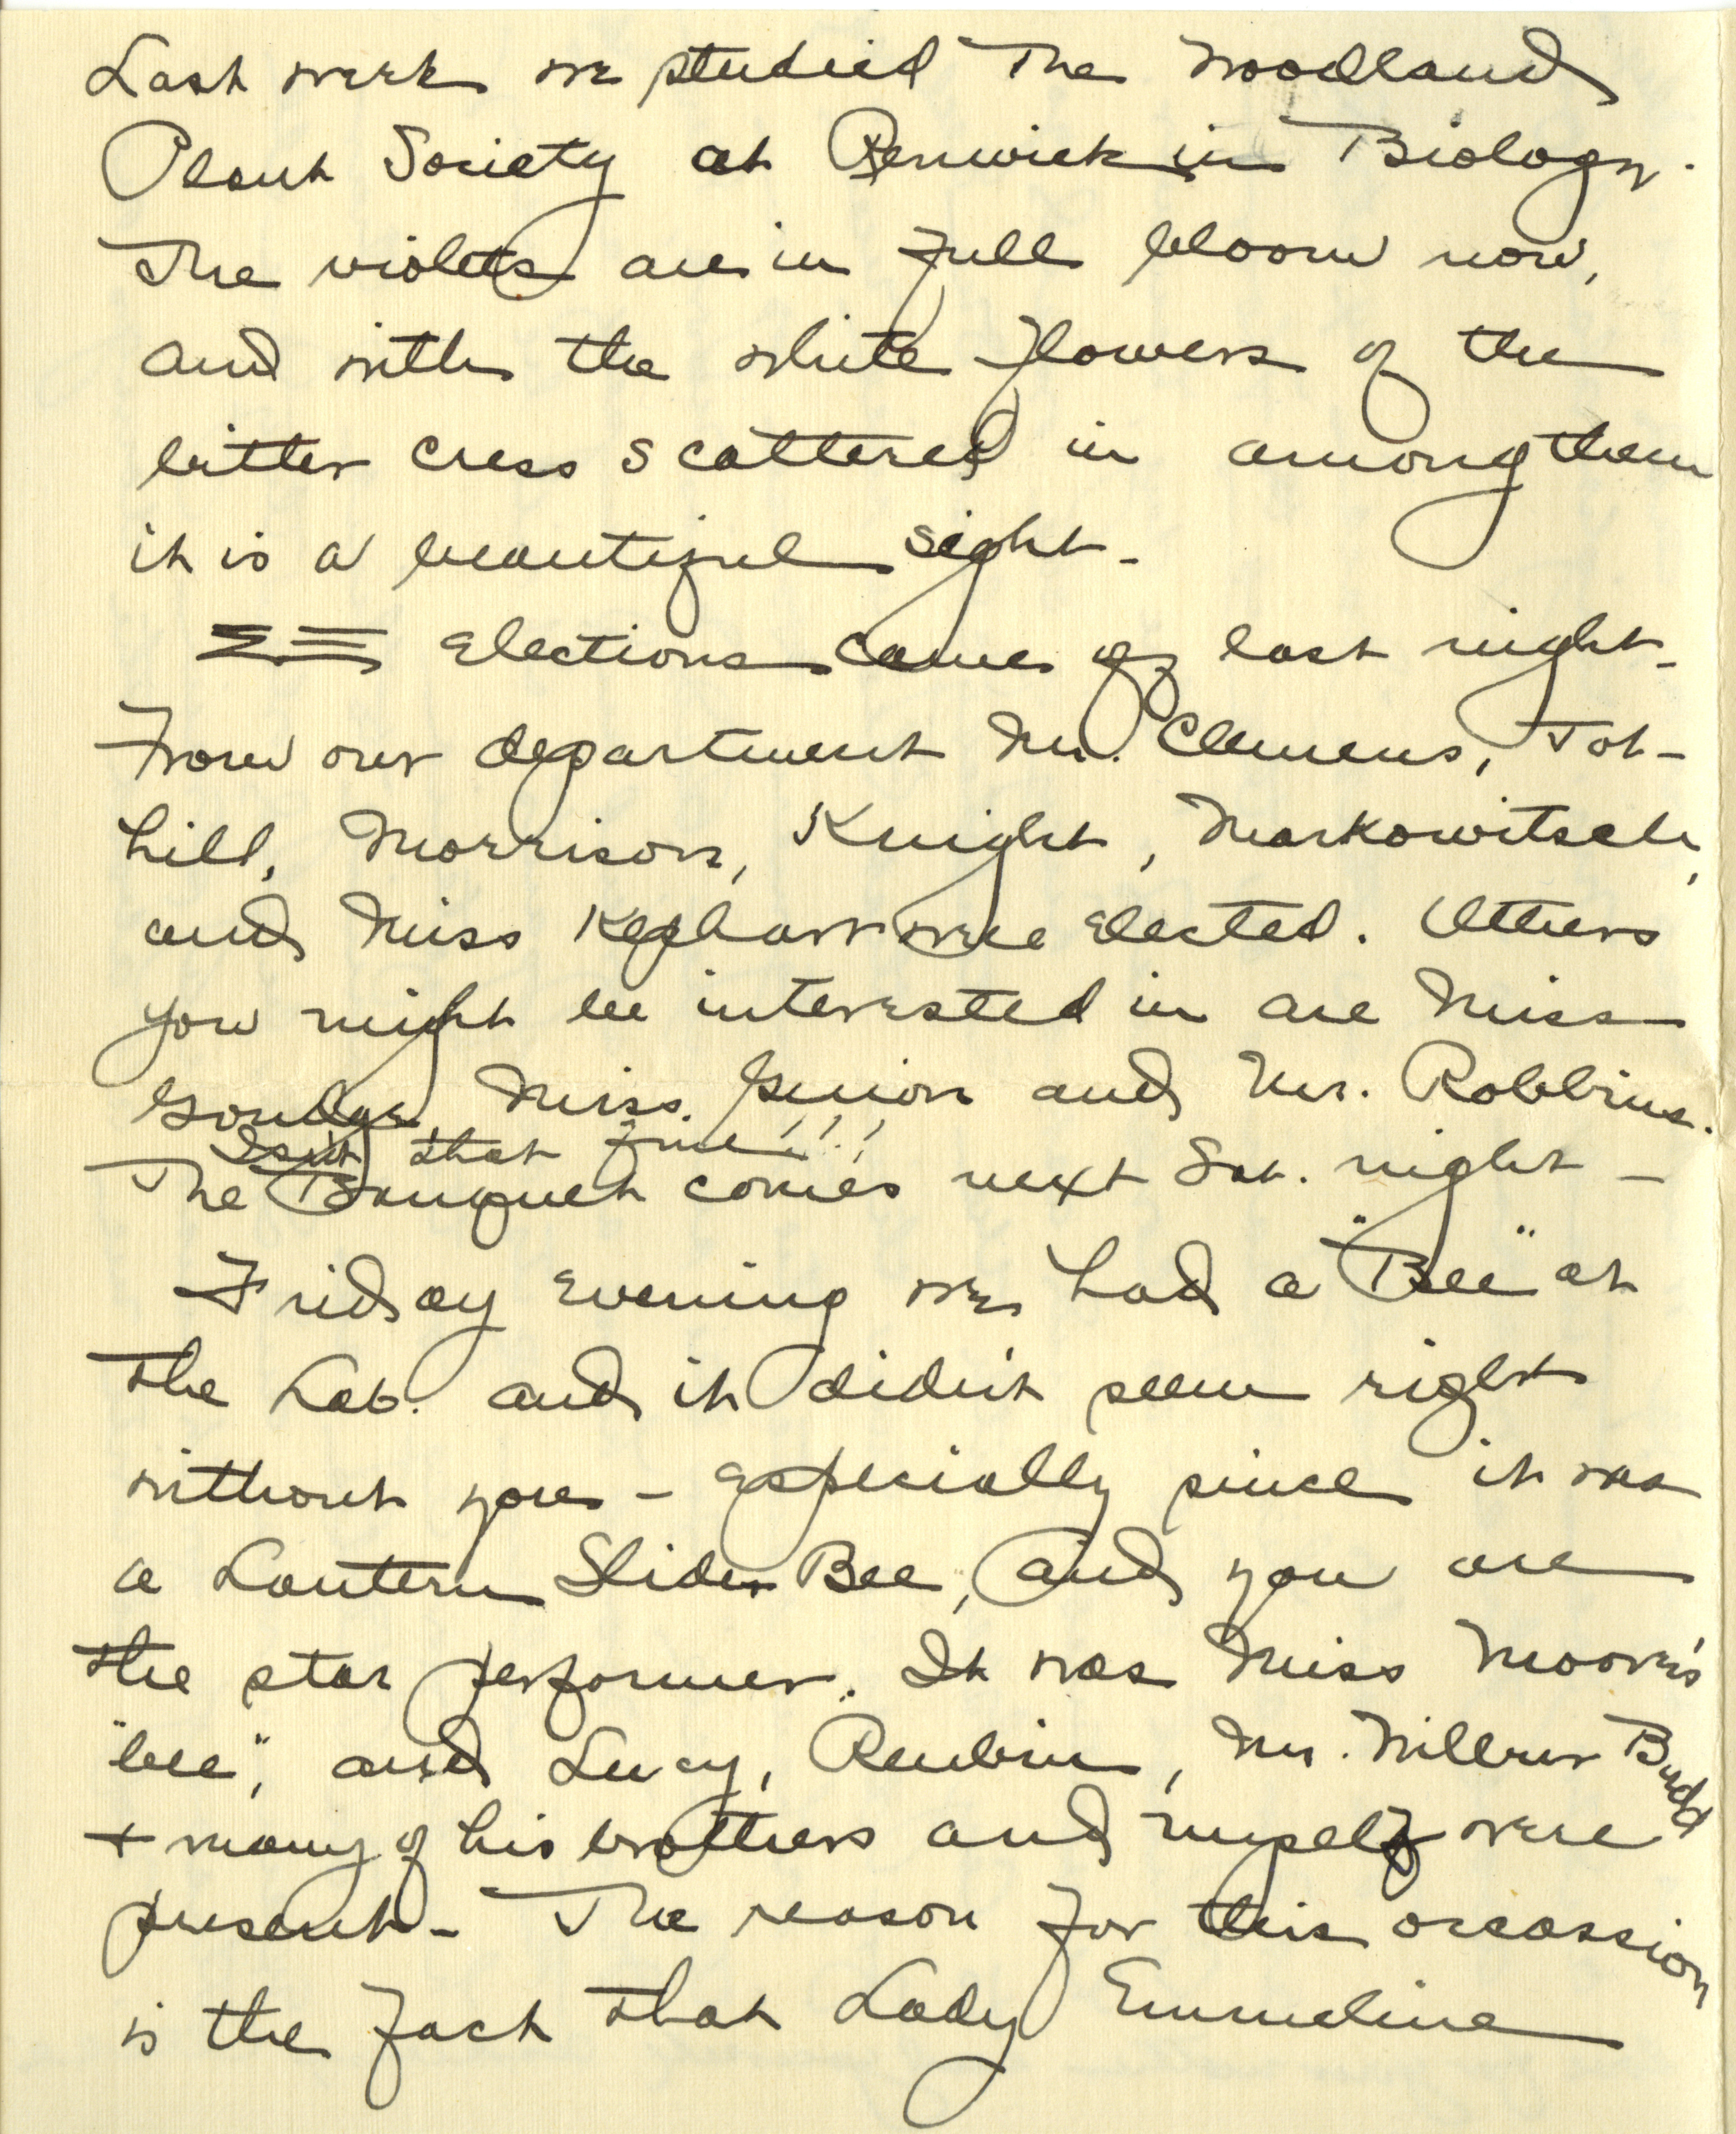 Last week we studied The Woodland
Plant Society at Renwick in Biology.
The violets are in full bloom now,
and with the white flowers of the
bitter cress scattered in among them
it is a beautiful sight-
ΣΞ Elections came off last night-
From our department Mr. Clemens, Tot-
hill, Morrison, Knight, Markowitsch,
and Miss Kephart were elected. Others
you might be interested in are Miss
Miss. Guion and Mr. Robbins.
Isn't that fine!!!
The Banquet comes next Sat. night -
Friday evening we had a "Bee" at
the Lab. and it didn't seem right
without you - especially since it was
a Lantern Slide Bee, and you are
the star performer. It was Miss Moore's
"bee", and Lucy, Reubin, Mr. Wilbur Budd
+ many of his brothers and myself were
present - The reason for this occassion
is the fact that Lady Emmeline